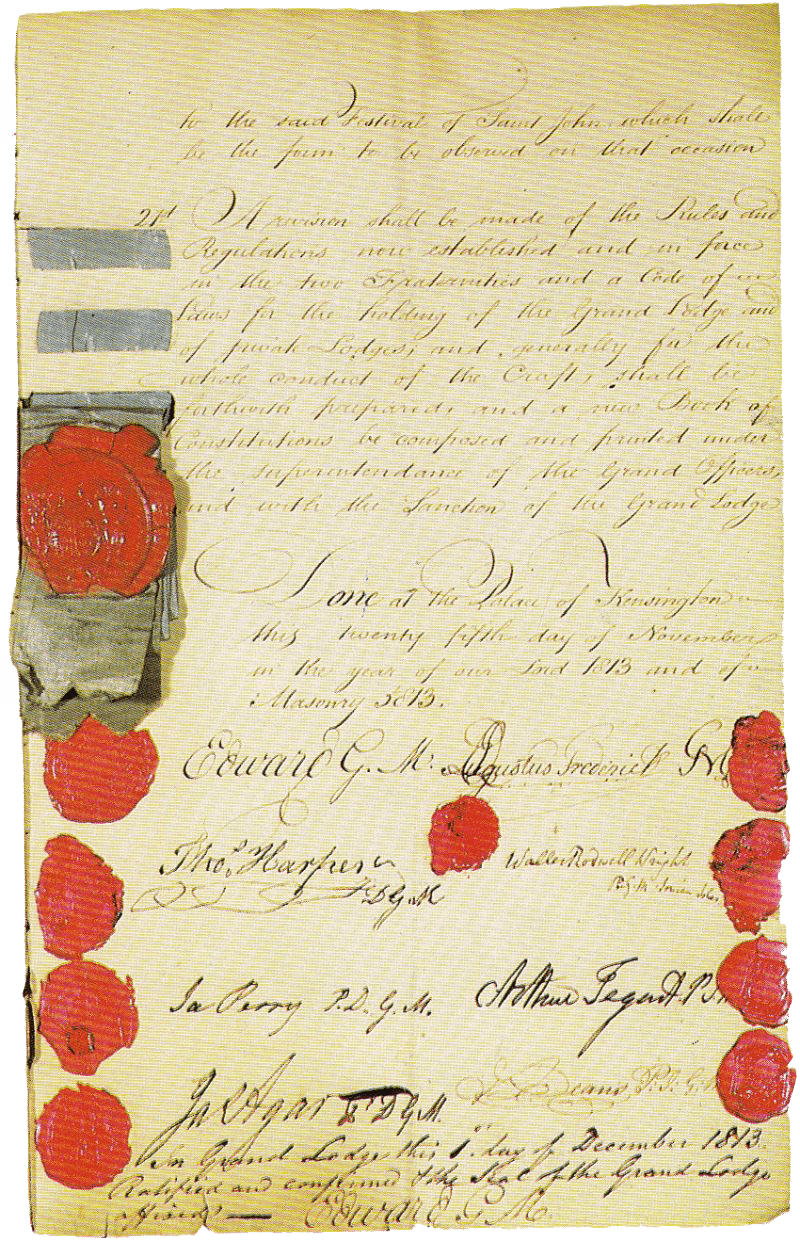 to the said Festival of Saint John which shall
be the form to be observed on that occasion
21st A revision shall be made of the Rules and
Regulations now established and in force
in the two Fraternities and a Code of
Laws for the holding of the Grand Lodge and
of private Lodges; and, generally for the
whole conduct of the Craft, shall be
forthwith prepared, and a new Book of
Constitutions be composed and printed under
the superintendance of the Grand Officers,
and with the Sanction of the Grand Lodge
Done at the Palace of Kensington
this twenty fifth day of November
in the year of our Lord 1813 and of
Masonry 5813.
Edward G. M. Augustus Frederick GM
Thos. Harper Waller Rodwell Wright
D G M P.G.M. Ionian Isles
Ja Perry P. D. G. M. Arthur Tegart P.
Jas Agar P D G M. J Deans, P. J. G.
In Grand Lodge this 1st day of December 1813.
Ratified and confirmed & the Seal of the Grand Lodge
affixed — Edward G M.